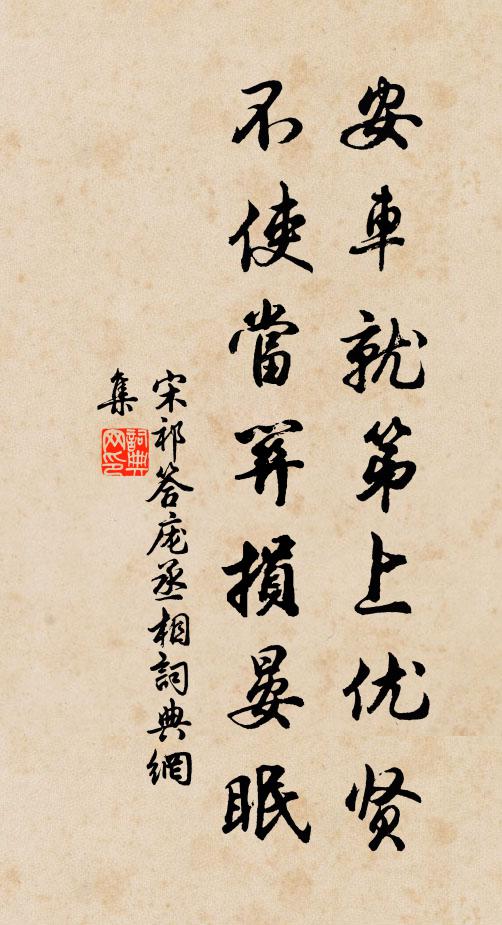 安車就第上优贤
不使當關損晏眠
宋祁答庞丞相詞典網
集
詞典
网印